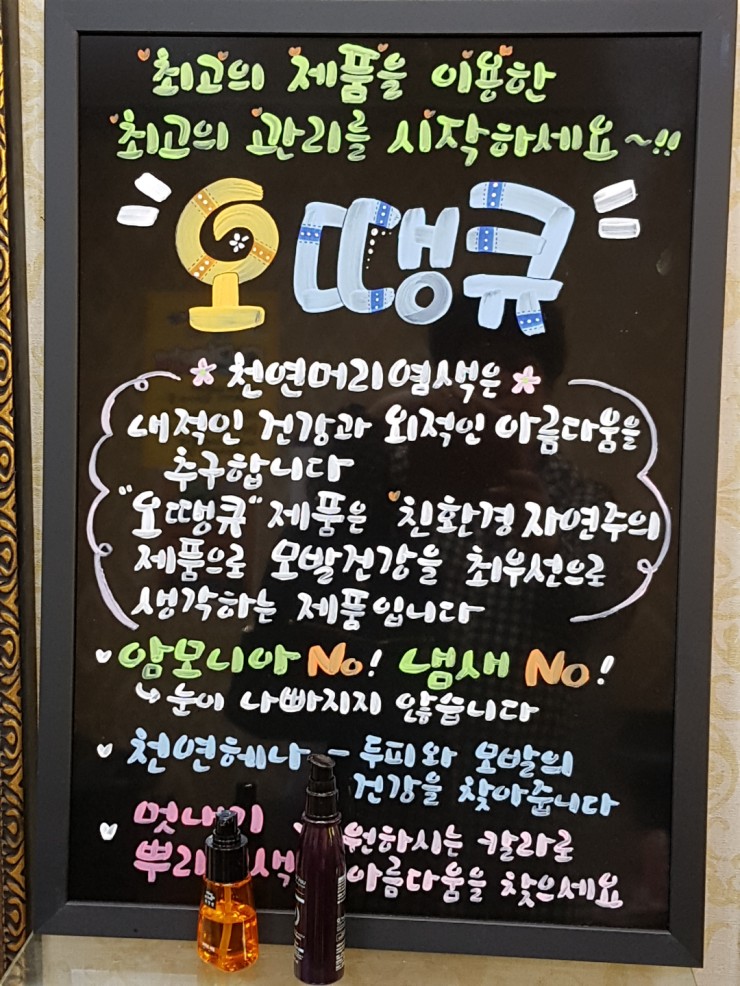 최고의 제품을 이용한
최고의 관리를 시작하세요~!!
오땡큐
천연머리염색은
내적인 건강과 외적인 아름다움을
추구합니다
"오땡큐" 제품은 친환경 자연주의
제품으로 모발건강을 최우선으로
생각하는 제품입니다
암모니아 No! 냄새 No!
눈이 나빠지지 않습니다
천연헤나 - 두피와 모발의
건강을 찾아줍니다
멋내기 원하시는 칼라로
아름다움을 찾으세요